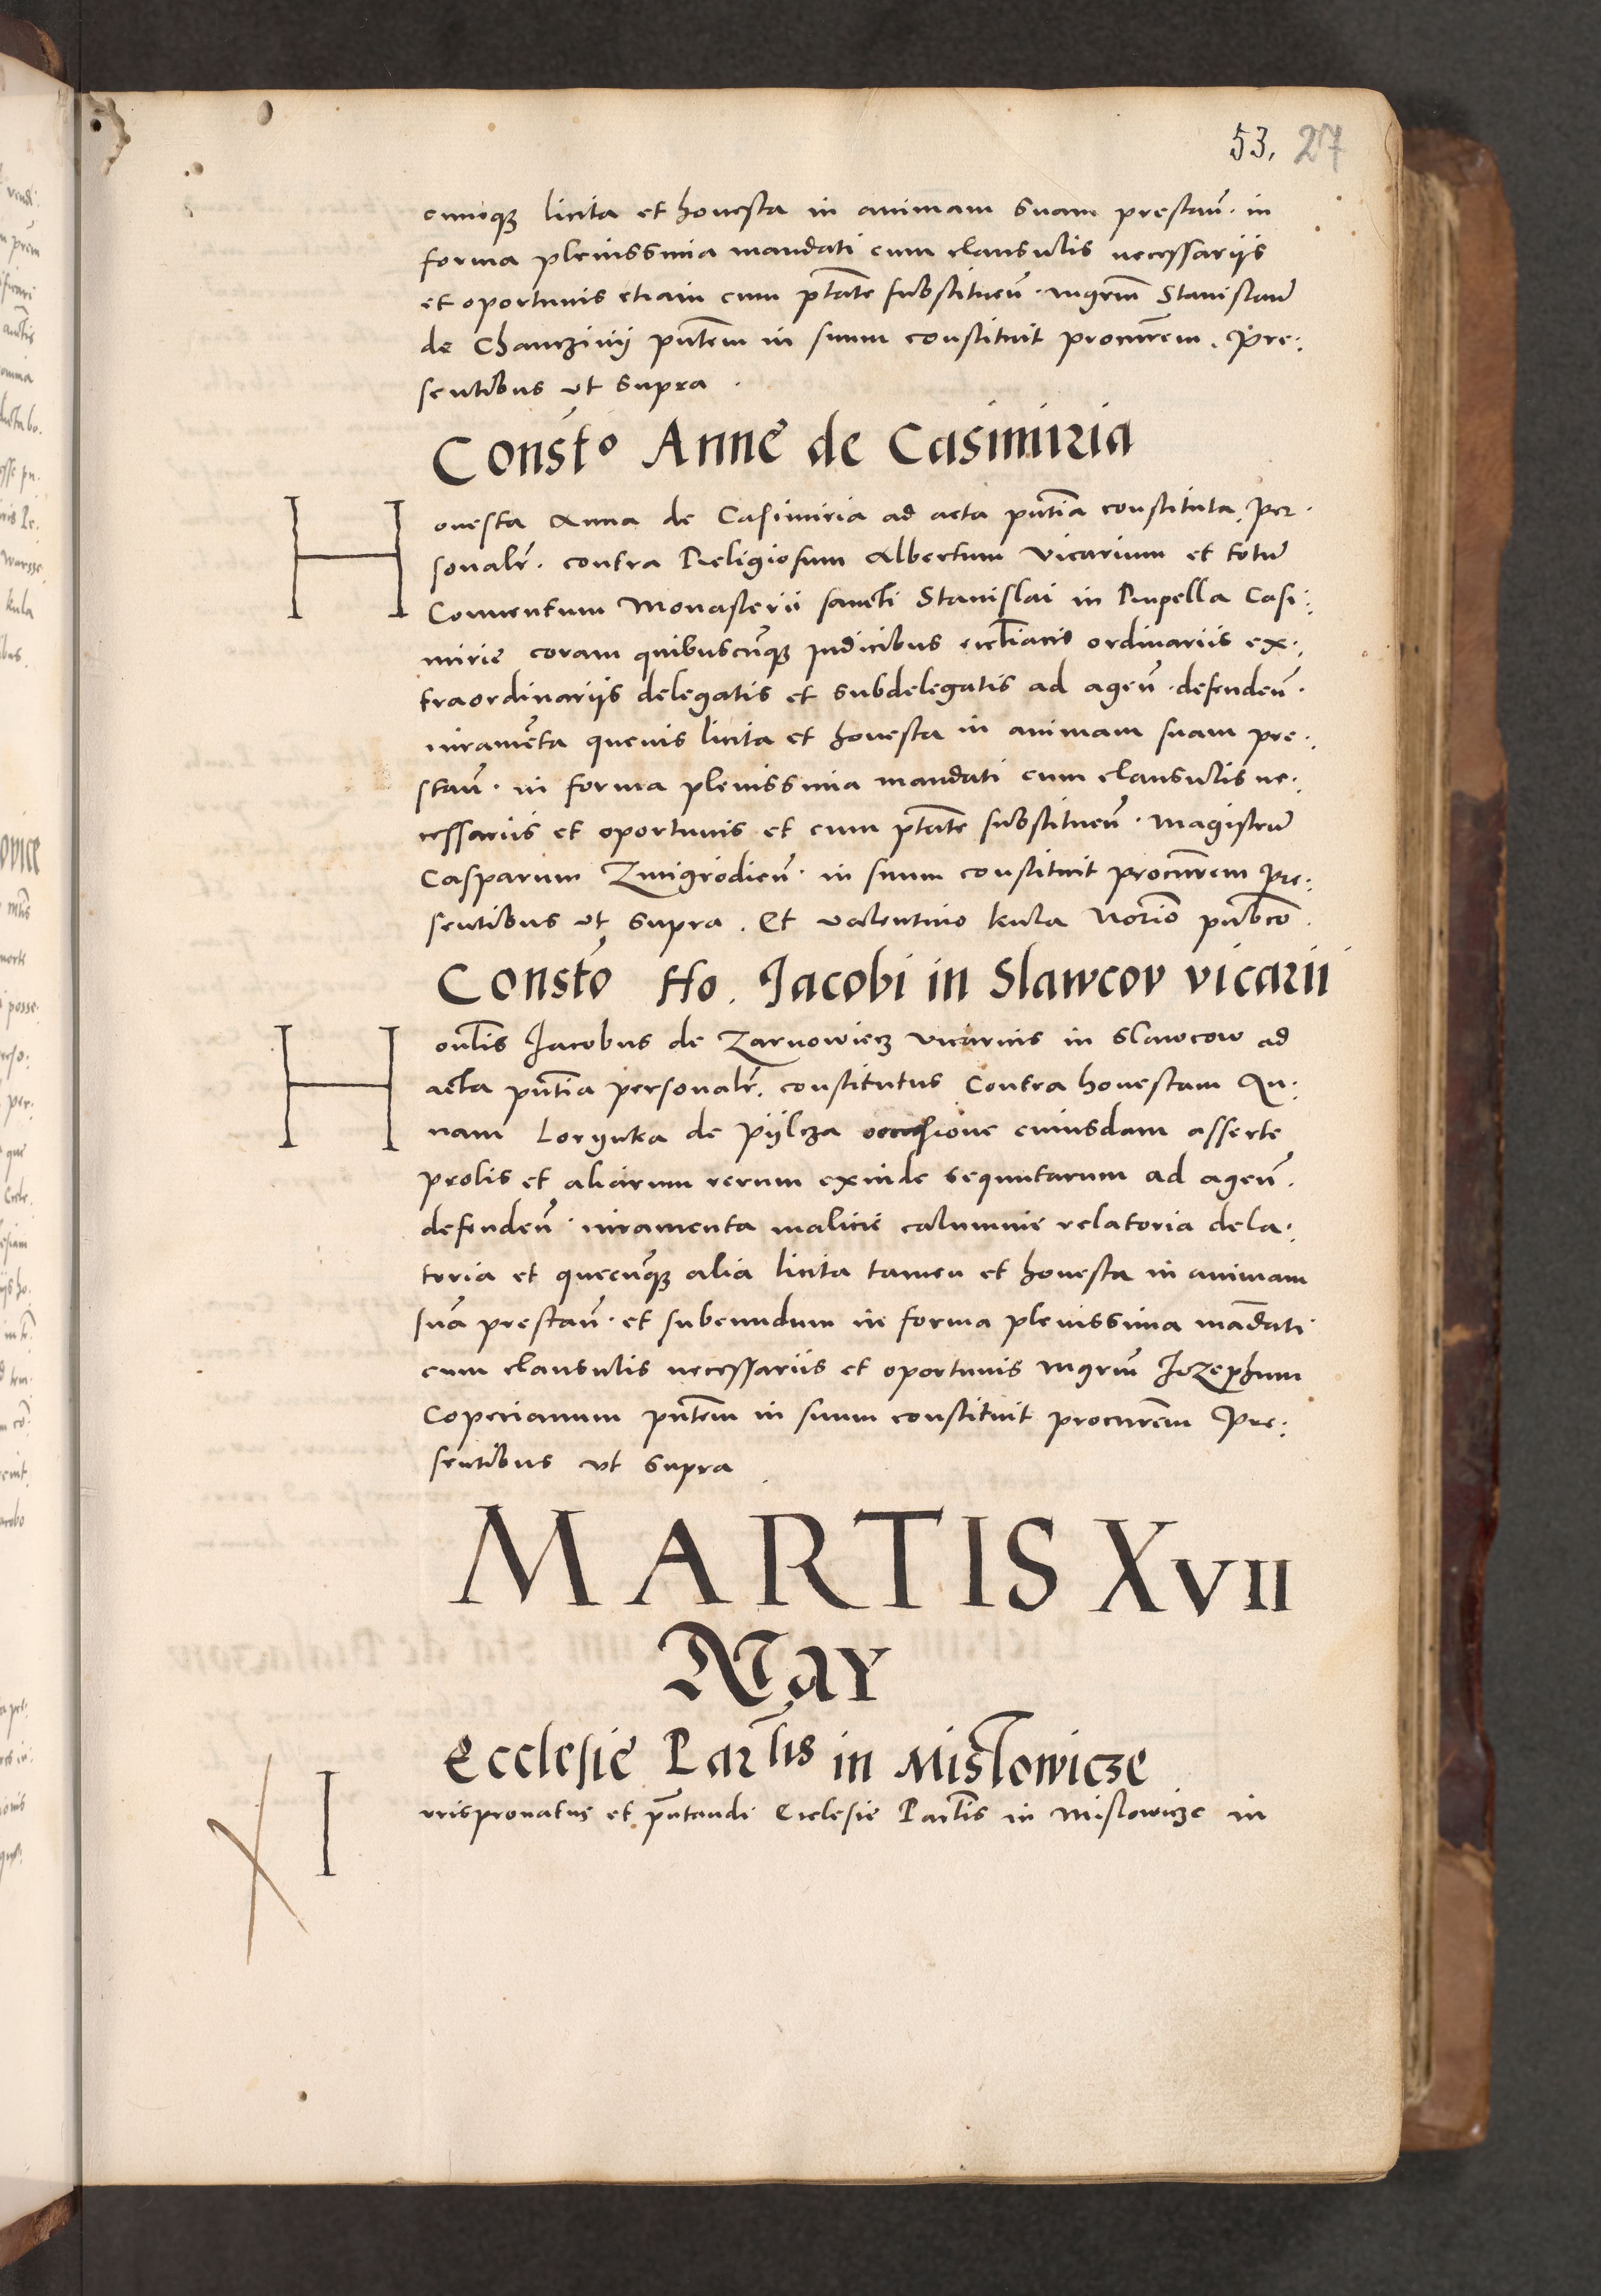 53, 27
cunq̃ licita et honesta in animam suam prestañ. in
forma plenissima mandati cum clausulis necessariis
et oportunis etiam cum ptãte substitueñ. mgrm̃ Stanislaũ
de Chanczinij pñtem in suum constituit procurem̃. Pre:
sentibus vt supra.
Consto Anne de Casimiria
Honesta Anna de Casimiria ad acta pñtia constituta. Per:
sonalr̃. contra Religiosum Albertum vicarium et totũ
Conuentum Monasterii sancti Stanislai in Rupella Casi:
mirie coram quibuscũq̃ Judicibus eccl̃iacis ordinariis ex:
traordinariis delegatis et subdelegatis ad ageñ. defendeñ.
iuramẽta queuis licita et honesta in animam suam pre:
stañ. in forma plenissima mandati cum clausulis ne:
cessariis et oportunis et cum ptãte substitueñ. Magistrũ
Casparum Zmigrodieñ. in suum constituit procurem̃ Pre:
sentibus vt supra. Et valentino kula Notrio publco.
Consto Ho. Jacobi in Slawcov vicarii
Honl̃is Jacobus de Zarnowiecz vicarius in Slawcow ad
acta pñtia personalr̃. constitutus Contra honestam An:
nam Lorynka de Pijlcza occasione cuiusdam asserte
prolis et aliarum rerum exinde sequutarum ad ageñ.
defendeñ. iuramenta malicie calumnie relatoria dela:
toria et quecũq̃ alia licita tamen et honesta in animam
suã prestañ. et subeundum in forma plenissima mãdati
cum clausulis necessariis et oportunis mgrm̃ Jozephum
Coperianum pñtem in suum constituit procurem̃ Pre:
sentibus vt supra
MARTIS XVII
MaY
Ecclesie Parl̃is in Mislowicze
Iurispronatus et pñtandi Ecclesie Parl̃is in Mislowicze in